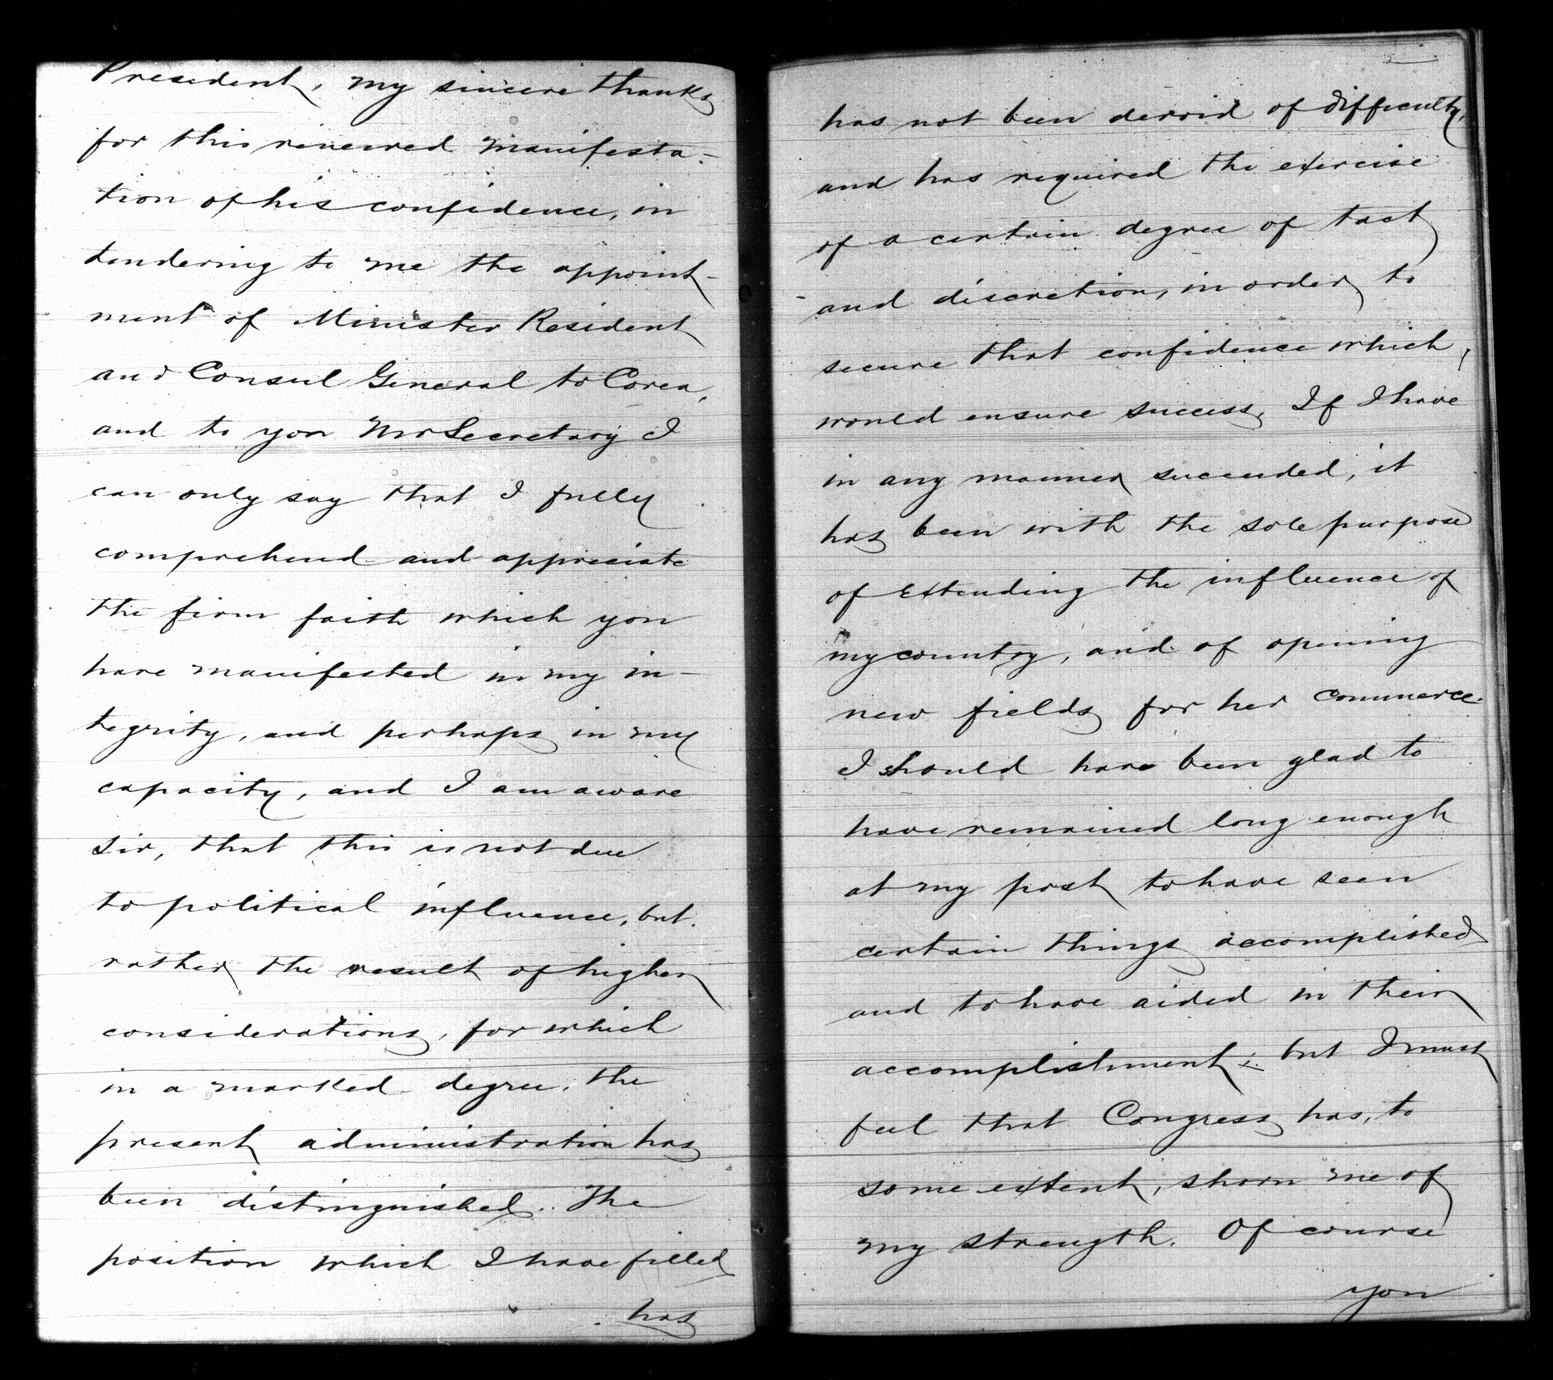 President, my sincere thanks
for this renewed manifesta-
tion of his confidence, in
tendering to me the appoint-
ment of Minister Resident
and Consul General to Corea,
and to you Mr Secretary I
can only say that I fully
comprehend and appreciate
the firm faith which you
have manifested in my in-
tegrity, and perhaps in my
capacity, and I am aware
sir, that this is not due
to political influence, but
rather the result of higher
considerations, for which
in a marked degree, the
present administration has
been distinguished. The
position which I have filled
has
has not been devoid of difficulty,
and has required the exercise
of a certain degree of tact
and discretion, in order to
secure that confidence which,
would ensure success. If I have
in any manner succeeded, it
has been with the sole purpose
of extending the influence of
my country, and of opening
new fields for her commerce.
I should have been glad to
have remained long enough
at my post to have seen
certain things accomplished
and to have aided in their
accomplishment; but I must
feel that Congress has, to
some extent, shorn me of
my strength. Of course
you